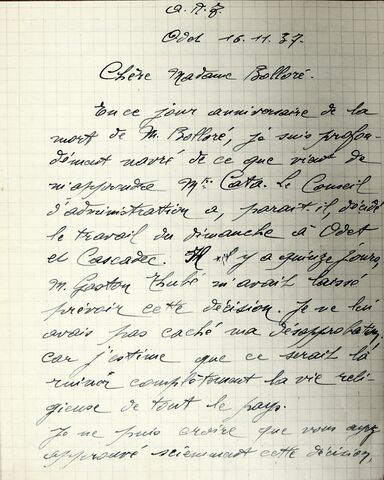 Odet 16.11.37.
Chère Madame Bolloré.
En ce jour anniversaire de la
mort de M. Bolloré, je suis profon-
dément navré de ce que vient de
m'apprendre Mr Cata. Le Conseil
d'administration a, parait-il, décidé
le travail du dimanche à Odet
et Cascadec. il y a quinze jours,
M. Gaston Thubé m'avait laissé
prévoir cette décision. Je ne lui
avais pas caché ma désapprobation,
car j'estime que ce serait là
ruiner complètement la vie reli-
gieuse de tout le pays.
Je ne puis croire que vous ayez
approuvé sciemment cette décision,